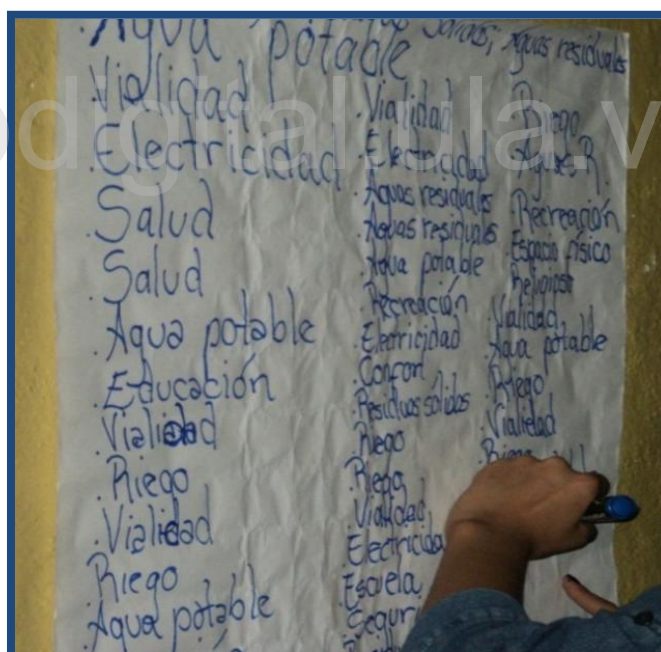 Agua potable
. Vialidad
. Electricidad
. Salud
. Salud
. Agua potable
. Educación
. Vialidad
. Riego
. Vialidad
. Riego
. Agua potable
Aguas residuales
. Vialidad
. Electricidad
. Aguas residuales
. Aguas residuales
. Agua potable
. Recreación
. Electricidad
. Confort
. Residuos sólidos
. Riego
. Riego
. Vialidad
. Electricida
. Escuela
. Segur
. Riego
. Aguas R.
. Recreación
. Espacio físico
Religioso
. Vialidad
. Agua potable
. Riego
. Vialidad
. Riego
odigital.ula.v